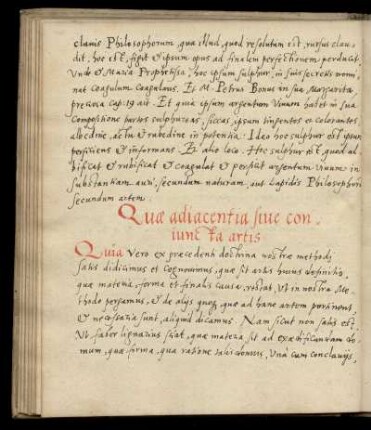 clauis Philosophorum, qua illud, quod resolutum est, rursus clau-
dit, hoc est, figit et ipsum opus ad finalem perfectionem perducit.
Vnde et Maria Prophetissa, hoc ipsum sulphur, in suis secretis nomi-
nat Coagulum Coagulans. Et M. Petrus Bonus in sua Margarita
preciosa cap: 19 ait. Et quia ipsum argentum viuum habet in sua
Compositione partes sulphureas, siccas, ipsum tingentes et colorantes,
albedine, actu et rubedine in potentia: Ideo hoc sulphur est ipsum
perficiens et informans. Et alio loco. Hoc sulphur est, quod al-
bificat et rubificat et coagulat et perficit argentum viuum in
substantiam auri, secundum naturam, aut Lapidis Philosophorum
secundum artem.
Quæ adiacentia siue con-
iuncta artis
Quia Vero ex præcedenti doctrina nostræ methodi
satis didicimus et Cognouimus, quæ sit artis huius definitio,
quæ materia, forma et finalis causa: restat, Vt in nostra Me-
thodo pergamus, et de alijs quoque, quæ ad hanc artem pertinent,
et necessaria sunt, aliquid dicamus. Nam sicut non satis est,
Vt faber lignarius sciat, quæ materia sit ad exædificandam do-
mum, quæ forma, qua ratione Vna cum conclauijs,